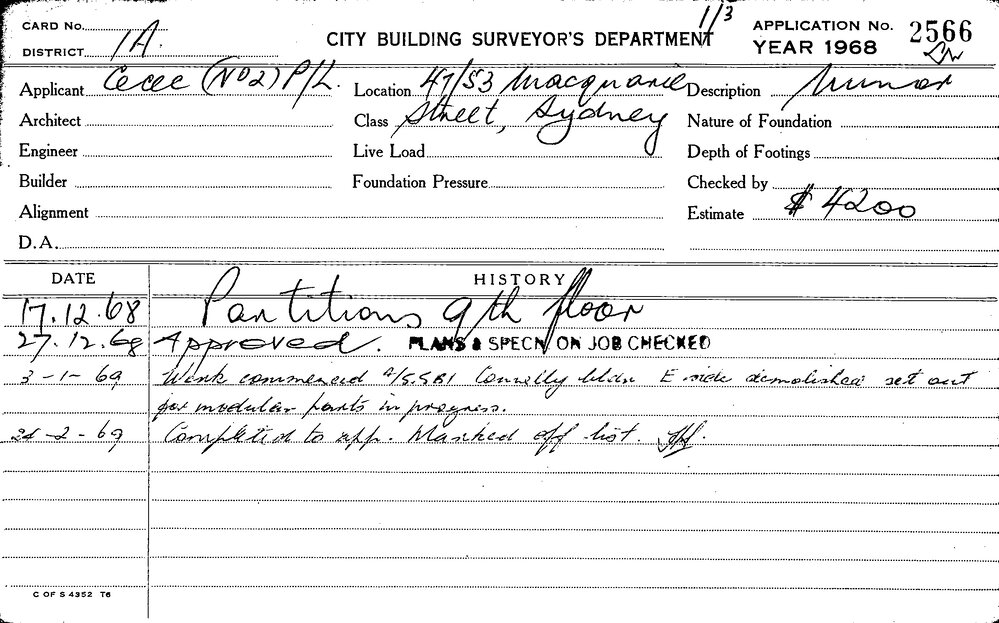 CARD No.
1/3
APPLICATION No. 2566
DISTRICT 1A.
CITY BUILDING SURVEYOR'S DEPARTMENT
YEAR 1968
Applicant (No 2) P/L. Location 47/53 Macquarie Description Minor
Architect Class Street, Sydney Nature of Foundation
Engineer Live Load Depth of Footings
Builder Foundation Pressure Checked by
Alignment Estimate $ 4200
D.A.
DATE HISTORY
17.12.68 Partitions 9th floor
27.12.68 Approved. PLANS & SPECN ON JOB CHECKED
3-1-69 Work commenced Connelly bldr E side demolished set out
for modular parts in progress.
24-2-69 Completed to app. Marked off list.
C OF S 4352 T6